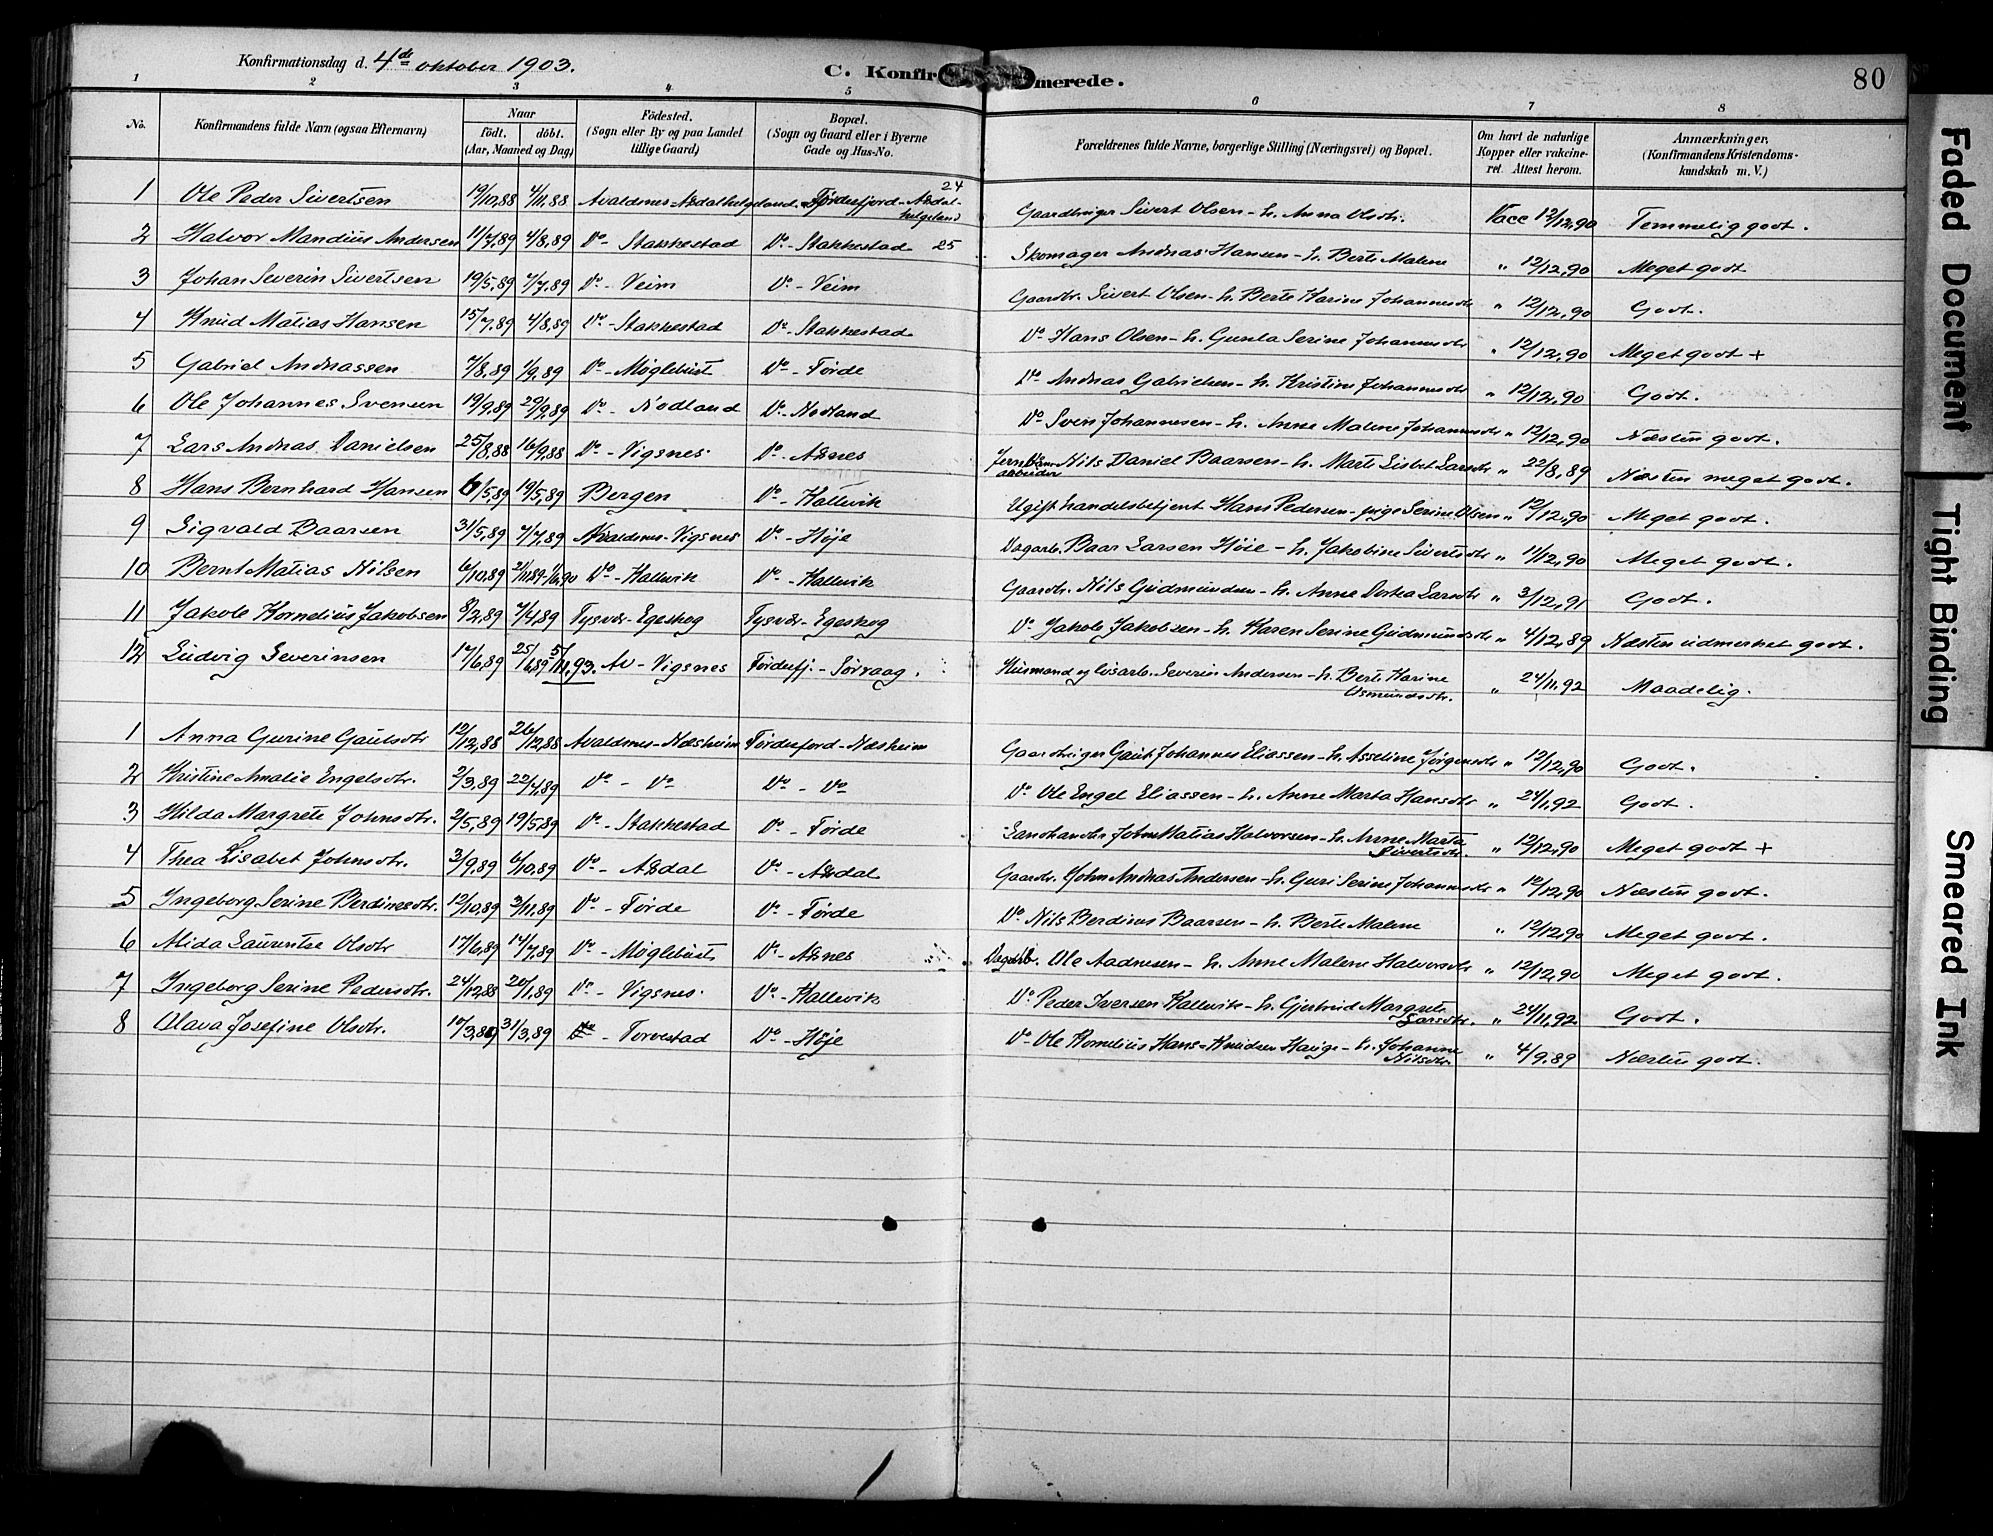 Konfirmationsdag d. 4de oktober 1903.
C. Konfirmerede.
80
1 2 3 4 5 6 7 8
No.
Konfirmandens fulde Navn (ogsaa Efternavn)
Naar
födt. döbt.
(Aar, Maaned og Dag)
Födested.
(Sogn eller By og paa Landet
tillige Gaard)
Bopæl.
(Sogn og Gaard eller i Byerne
Gade og Hus-No.
Forældrenes fulde Navne, borgerlige Stilling (Næringsvei) og Bopæl.
Om havt de naturlige
Kopper eller vakcine-
ret. Attest herom.
Anmærkninger,
(Konfirmandens Kristendoms-
kundskab m. V.)
24
1 Ole Peder Sivertsen 19/10,88 4/11,88 Avaldsnes-Aadalhelgeland Førdesfjord-Aadal-helgeland Gaardbruger Sivert Olsen - h. Anna Olsdtr. Vacc 12/12,90 Temmelig godt.
2 Halvor Mandius Andersen 11/7,89 4/8,89 Do - Stakkestad Do - Stakkestad 25 Skomager Andreas Hansen - h. Berte Malene " 12/12,90 Meget godt
3 Johan Severin Sivertsen 19/5,89 7/7,89 Do - Veim Do - Veim Gaardbr. Sivert Olsen - h. Berte Karine Johannesdtr " 12/12,90 Godt.
4 Knud Matias Hansen 15/7,89 4/8,89 Do - Stakkestad Do - Stakkestad Do Hans Olsen - h. Gunla Serine Johannesdtr " 12/12,90 Meget godt +
5 Gabriel Andreassen 7/8,89 1/9,89 Do - Møglebust Do - Førde Do Andreas Gabrielsen - h. Kristine Johannesdtr " 12/12,90 Godt.
6 Ole Johannes Svensen 19/9,89 29/9,89 Do - Nodland Do - Nodland Do Svein Johannesen - h. Anne Malene Johannesdtr " 12/12,90 Næsten godt.
7 Lars Andreas Danielsen 25/8,88 16/9,88 Do - Vigsnes Do - Asnes arbeider Nils Daniel Baarsen - h. Marte Lisbet Larsdtr " 22/8,89 Næsten meget godt.
8 Hans Bernhard Hansen 6/5,89 19/5,89 Bergen Do - Hallevik Ugift handelsbetjent Hans Pedersen - pige Serine Olsen " 12/12,90 Meget godt.
9 Sigvald Baarsen 31/5,89 7/7,89 Avaldsnes-Vigsnes Do - Høje Dagarb. Baar Larsen Høie - h. Jakobine Sivertsdtr " 11/12,90 Meget godt.
10 Bernt Matias Nilsen 6/10,89 Do - Hallevik Do - Hallevik Gaardbr. Nils Gudmundsen - h. Anne Dortea Larsdtr " 3/12,91 Godt.
11 Jakob Kornelius Jakobsen 8/2,89 7/4,89 Tysvær-Egeskog Tysvær-Egeskog Do Jakob Jakobsen - h. Karen Serine Gudmundsdtr " 4/12,89 Næsten udmerket godt.
12 Ludvig Severinsen 17/6,89 25/6,89 5/11,93. Av - Vigsnes Førdesfj. - Sørvaag. Husmand og løsarb. Severin Andersen - h. Berte Karine Asmundsdtr. " 24/11,92 Maadelig.
1 Anna Gurine Gautsdtr 12/12,88 26/12,88 Avaldsnes-Næsheim Førdesfjord-Næsheim Gaardbruger Gaut Johannes Eliassen - h. Asseline Jørgensdtr " 12/12,90 Godt.
2 Kristine Amalie Engelsdtr. 2/3,89 22/4,89 Do - Do Do - Do Do Ole Engel Eliassen - h. Anne Marta Hansdtr " 24/1,92 Godt.
3 Hilda Margrete Johnsdtr. 2/5,89 19/5,89 Do - Stakkestad Do - Førde Landhandler John Matias Halvorsen - h. Anne Marta Sivertsdtr. " 12/12,90 Meget godt +
4 Thea Lisabet Johnsdtr. 3/9,89 6/10,89 Do - Aadal Do - Aadal Gaardbr. John Andreas Andersen - h. Guri Serine Johannesdtr " 12/12,90 Næsten godt.
5 Ingeborg Serine Berdinesdtr. 12/10,89 3/11,89 Do - Førde Do - Førde Do Nils Berdines Baarsen - h. Berte Malene " 12/12,90 Meget godt.
6 Alida Laurentse Olsdtr 17/6,89 14/7,89 Do - Møglebust Do - Asnes Dagarb. Ole Aadnesen - h. Anne Malene Halvorsdtr " 12/12,90 Meget godt.
7 Ingeborg Serine Pedersdtr. 24/12,88 20/1,89 Do - Vigsnes Do - Hallevik Do Peder Iversen Hallevik - h. Gjertrud Margrete Larsdtr. " 24/11,92 Godt.
8 Olava Josefine Olsdtr. 10/3,89 31/3,89 Torvestad Do - Høje Do Ole Kornelius Hans-Knudsen Hauge - h. Johanne Nilsdtr. " 4/9,89 Næsten godt.
Faded Document
Tight Binding
Smeared Ink